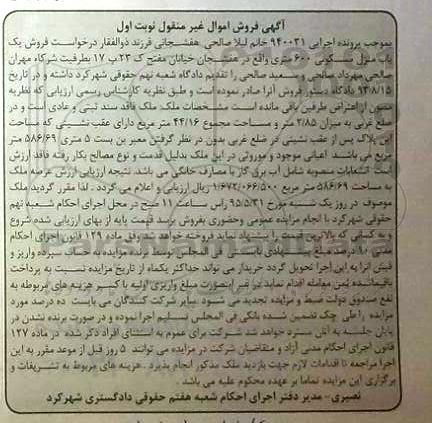 آگهی فروش اموال غیر منقول نوبت اول
بموجب پرونده اجرایی ۹۴۰۰۳۱ خانم لیلا صالحی هفشجانی فرزند ذوالفقار درخواست فروش یک
باب منزل مسکونی ۶۰۰ متری واقع در هفشجان خیابان مفتح ک ۲۳ پ ۱۷ بطرفیت شرکاء مهران
صالحی مهرداد صالحی و سعید صالحی را تقدیم دادگاه شعبه نهم حقوقی شهرکرد داشته و در تاریخ
۹۳/۸/۱۵ دادگاه دستور فروش آنرا صادر نموده است و طبق نظریه کارشناس رسمی ارزیابی که نظریه
مصون از اعتراض طرفین باقی مانده است مشخصات ملک: ملک فاقد سند ثبتی و عادی است و در
ضلع غربی به میزان ۲/۸۵ متر و مساحت مجموع ۴۴/۱۶ متر مربع دارای عقب نشینی که مساحت
این پلاک پس از عقب نشینی در ضلع غربی بدون در نظر گرفتن معبر بن بست ۵ متری ۵۸۶/۶۹ متر
مربع می باشد اعیانی موجود و موروثی در این ملک بدلیل قدمت و نوع مصالح بکار رفته فاقد ارزش
است انشعابات منصوبه شامل آب برق گاز با مصارف خانگی می باشد. نتیجه ارزیابی ارزش عرصه ملک
به مساحت ۵۸۶/۶۹ متر مربع ۱/۶۷۲/۰۶۶/۵۰۰ ریال ارزیابی و اعلام می گردد . لذا مقرر گردید ملک
موصوف در روز یک شنبه مورخ ۹۵/۵/۳۱ راس ساعت ۱۱ صبح در محل اجرای احکام شعبه نهم
حقوقی شهرکرد با انجام مزایده عمومی وحضوری بفروش برسد قیمت پایه از بهای ارزیابی شده شروع
و به کسانی که بالاترین قیمت را پیشنهاد نماید فروخته خواهد شد وفق ماده ۱۲۹ قانون اجرای احکام
مدنی ۱۰ درصد مبلغ پیشنهادی بایستی فی المجلس توسط برنده مزایده به حساب سپرده واریز و
فیش آنرا به این اجرا تحویل گردد خریدار می تواند حداکثر یکماه از تاریخ مزایده نسبت به پرداخت
باقیمانده ثمن معامله اقدام نماید در غیر اینصورت مبلغ واریزی اولیه با کسر هزینه های مربوطه به
نفع صندوق دولت ضبط و مزایده تجدید می شود سایر شرکت کنندگان می بایست ده درصد مورد
مزایده را طی چک تضمین شده بانکی فی المجلس تسلیم اجرا نموده و در صورت برنده نشدن در
پایان جلسه به آنان مسترد خواهد شد شرکت برای عموم به استثنای افراد ذکر شده در ماده ۱۲۷
قانون اجرای احکام مدنی آزاد و متقاضیان شرکت در مزایده می توانند ۵ روز قبل از موعد مقرر به این
اجرا مراجعه تا اقدامات لازم جهت بازدید ملک مذکور انجام پذیرد . هزینه های مربوط به تشریفات و
برگزاری این مزایده تماما بر عهده محکوم علیه می باشد .
نصیری - مدیر دفتر اجرای احکام شعبه هفتم حقوقی دادگستری شهرکرد